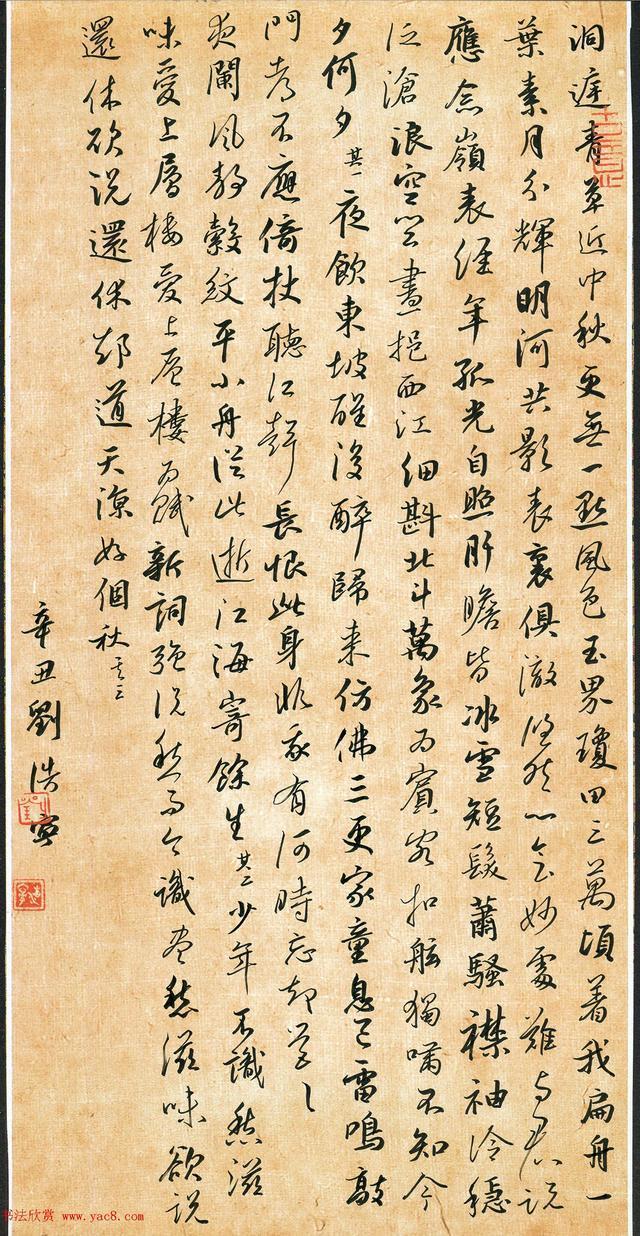 洞庭青草近中秋更無一點風色玉界瓊田三萬頃着我扁舟一
葉素月分輝明河共影表裏俱澈悠然心會妙處難與君說
應念嶺表經年孤光自照肝膽皆冰雪短髮蕭騷襟袖冷穩
泛滄浪空闊盡挹西江細斟北斗萬象為賓客扣舷獨嘯不知今
夕何夕其一夜飲東坡醒復醉歸來仿佛三更家童息已雷鳴敲
門都不應倚杖聽江聲長恨此身非我有何時忘却營〻
夜闌風靜縠紋平小舟從此逝江海寄餘生其二少年不識愁滋
味愛上層樓愛上層樓為賦新詞強說愁而今識盡愁滋味欲說
還休欲說還休却道天涼好個秋其三
辛丑劉浩
书法欣赏 www.yac8.com